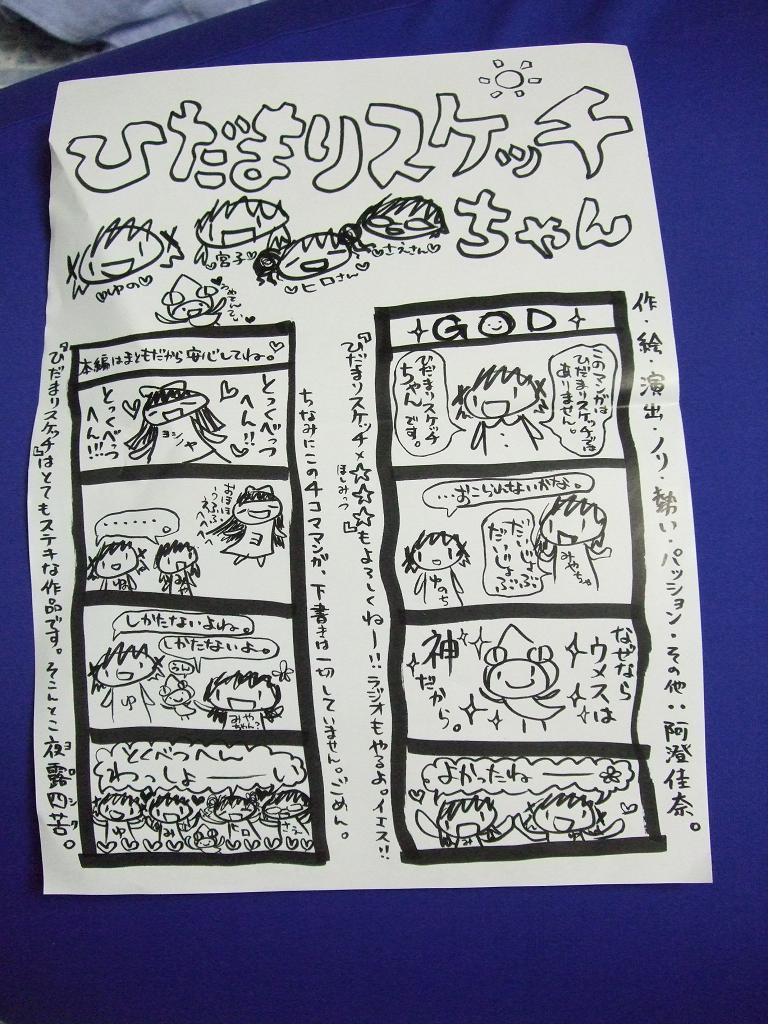 ひだまりスケッチ
ちゃん
ゆの
宮子
ヒロさん
さえさん
うめてんてい
作・絵・演出・ノリ・勢い・パッション・その他:阿澄佳奈。
GOD
このマンガは
ひだまりスケッチでは
ありません。
ひだまりスケッチ
ちゃんです。
…おこられないかな。
だいじょぶ
だいじょぶ
みやちゃ
ゆのち
なぜなら
ウメスは
神
だから。
よかったねーー
『ひだまりスケッチ×☆☆☆』もよろしくねー!!ラジオもやるよ。イェス!!
ほしみっつ
ちなみにこの4コママンガ、下書きは一切していません。ごめん。
本編はまともだから安心してね。
とっくべっつ
へん!!
とっくべっつ
へん!!!
ヨシヤ
おほほほ
うふふ
えへへへ
ヨ
………
ゆの
みや
しかたないよね。
しかたないよ。
ゆ
みやちゃん?
とくべつへん
わっしょーーい
ゆ
み
ヒロ
さえ
『ひだまりスケッチ』はとてもステキな作品です。そこんとこ夜露四苦。
ヨロシク